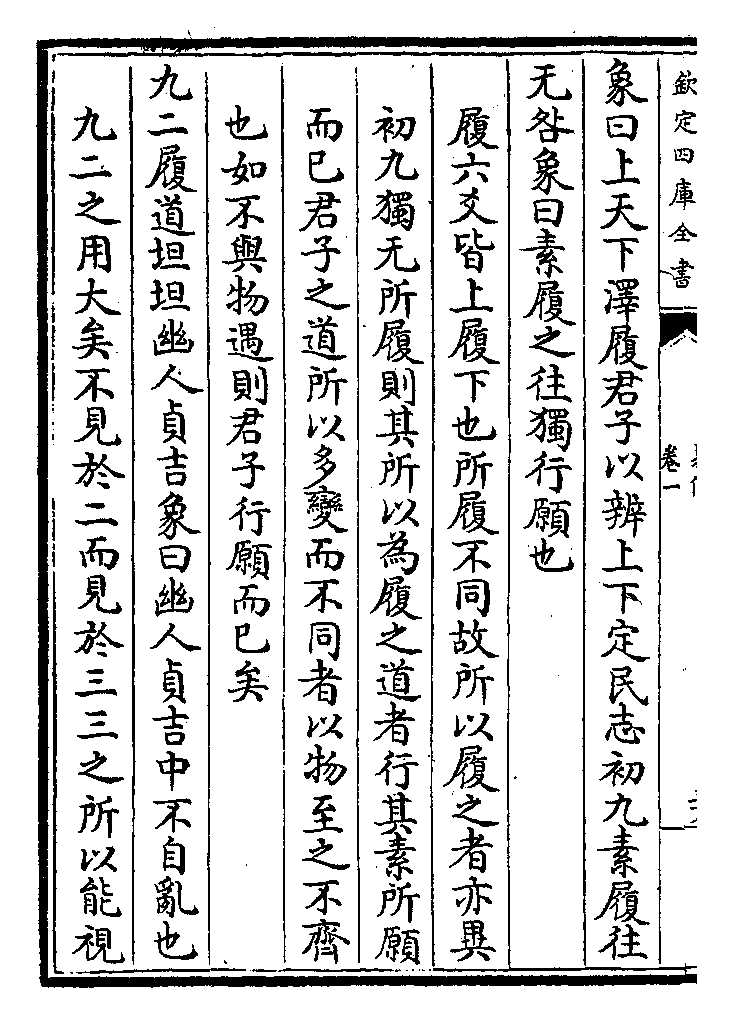 欽定四庫全書
卷一
象曰上天下澤履君子以辨上下定民志初九素履往
无咎象曰素履之往獨行願也
履六爻皆上履下也所履不同故所以履之者亦異
初九獨无所履則其所以為履之道者行其素所願
而已君子之道所以多變而不同者以物至之不齊
也如不與物遇則君子行願而已矣
九二履道坦坦幽人貞吉象曰幽人貞吉中不自亂也
九二之用大矣不見於二而見於三三之所以能視